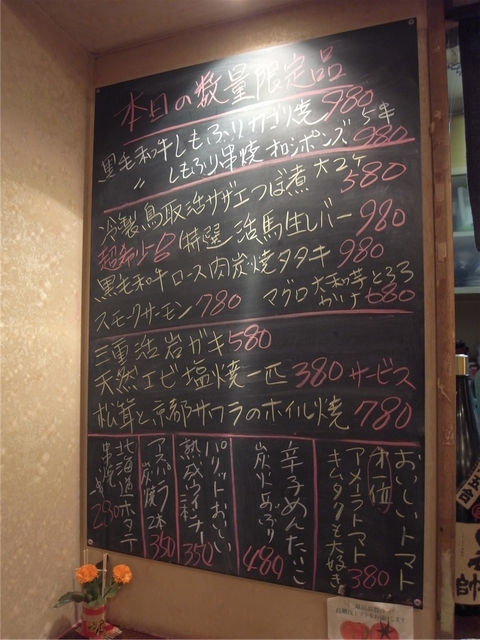 本日の数量限定品
黒毛和牛しもふりザブリ焼 980
〃 しもふり串焼 オロシポンズ 5キ 980
冷製鳥取活サザエつぼ煮 大2ケ 580
超希少品 特選 活馬生レバー 980
黒毛和牛ロース肉炭焼タタキ 980
スモークサーモン 780 マグロ大和芋とろろ
680
三重活岩ガキ 580
天然エビ塩焼一匹 380 サービス
松茸と京都サワラのホイル焼 780
おいしいトマト
アメーラトマト 380
キムタクも大好き
辛子めんたいこ
炭火あぶり 480
パリットおいしい
熟成ウインナー 350
アスパラ
炭焼 2本 350
北海道ホタテ
串焼 280